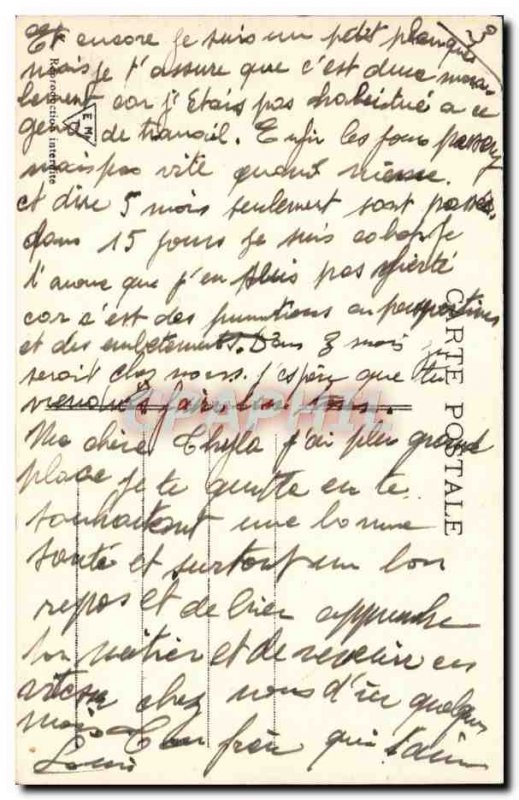 3
Et encore je suis un petit planqué
mais je t'assure que c'est dure mora
lement car j'étais pas habitué a ce
genre de travail. Enfin les jours passent
mais pas vite quand même.
et dire 5 mois seulement sont passés.
dans 15 jours je suis
t'avoue que j'en suis pas fierté
car c'est des punitions en perspectives
et des embetements. Dans 3 mois je
serait chez nous. j'espère que tu
viendras faire
Ma chère j'ai plus grand
place je te quitte en te
souhaitant une bonne
santé et surtout un bon
repos et de bien apprendre
ton métier et de revenir en
chez nous d'ici quelques
mois Ton frère qui t'aime
Louis
CARTE POSTALE
Reproduction Interdite
E M
CAPHIL